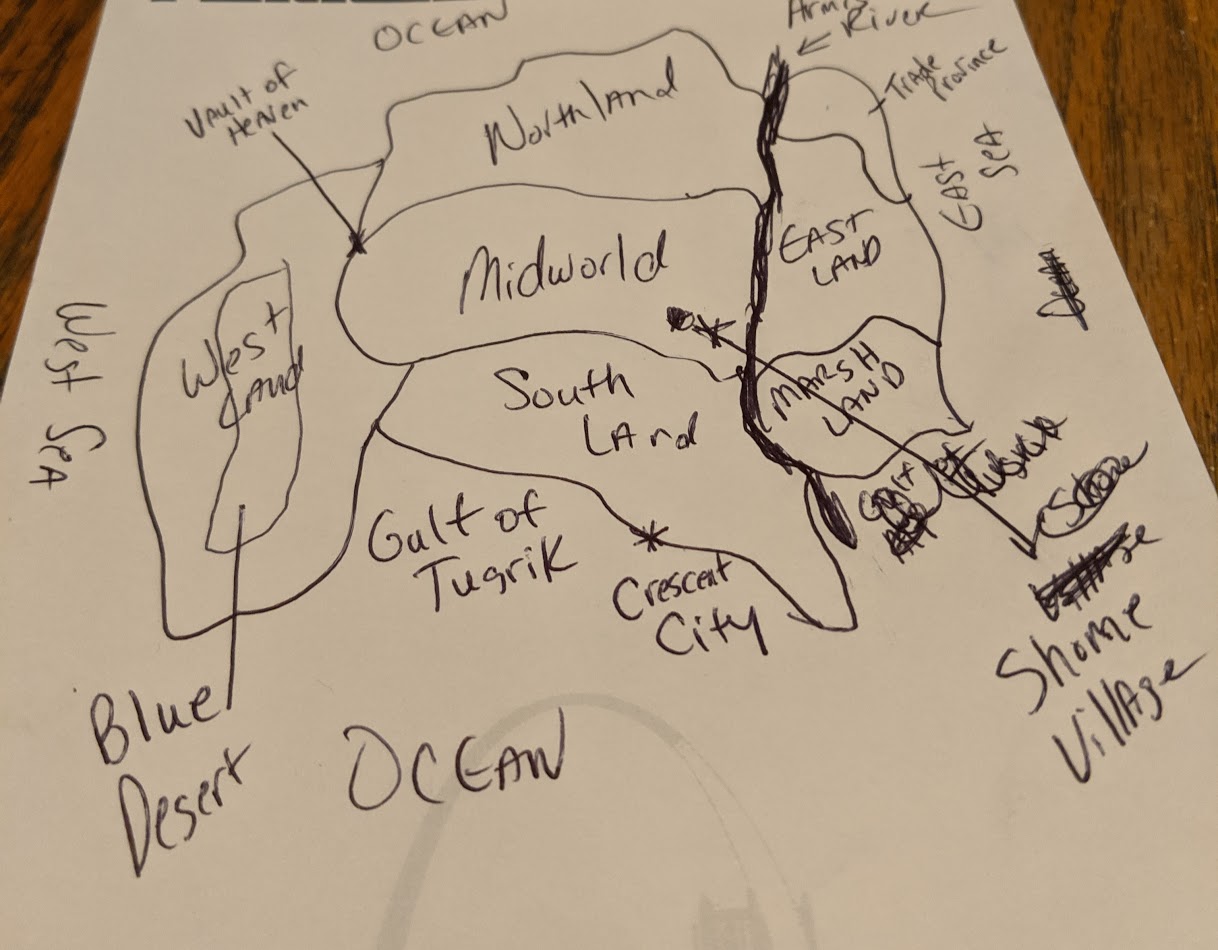 OCEAN
River
Vault of
Heaven
Northland
Trade
Province
EAST
SEA
Midworld
EAST
LAND
West
Sea
West
Land
South
Land
MARSH
LAND
Gulf of
Tugrik
Gulf of
Crescent
City
Shome
Village
Blue
Desert
OCEAN